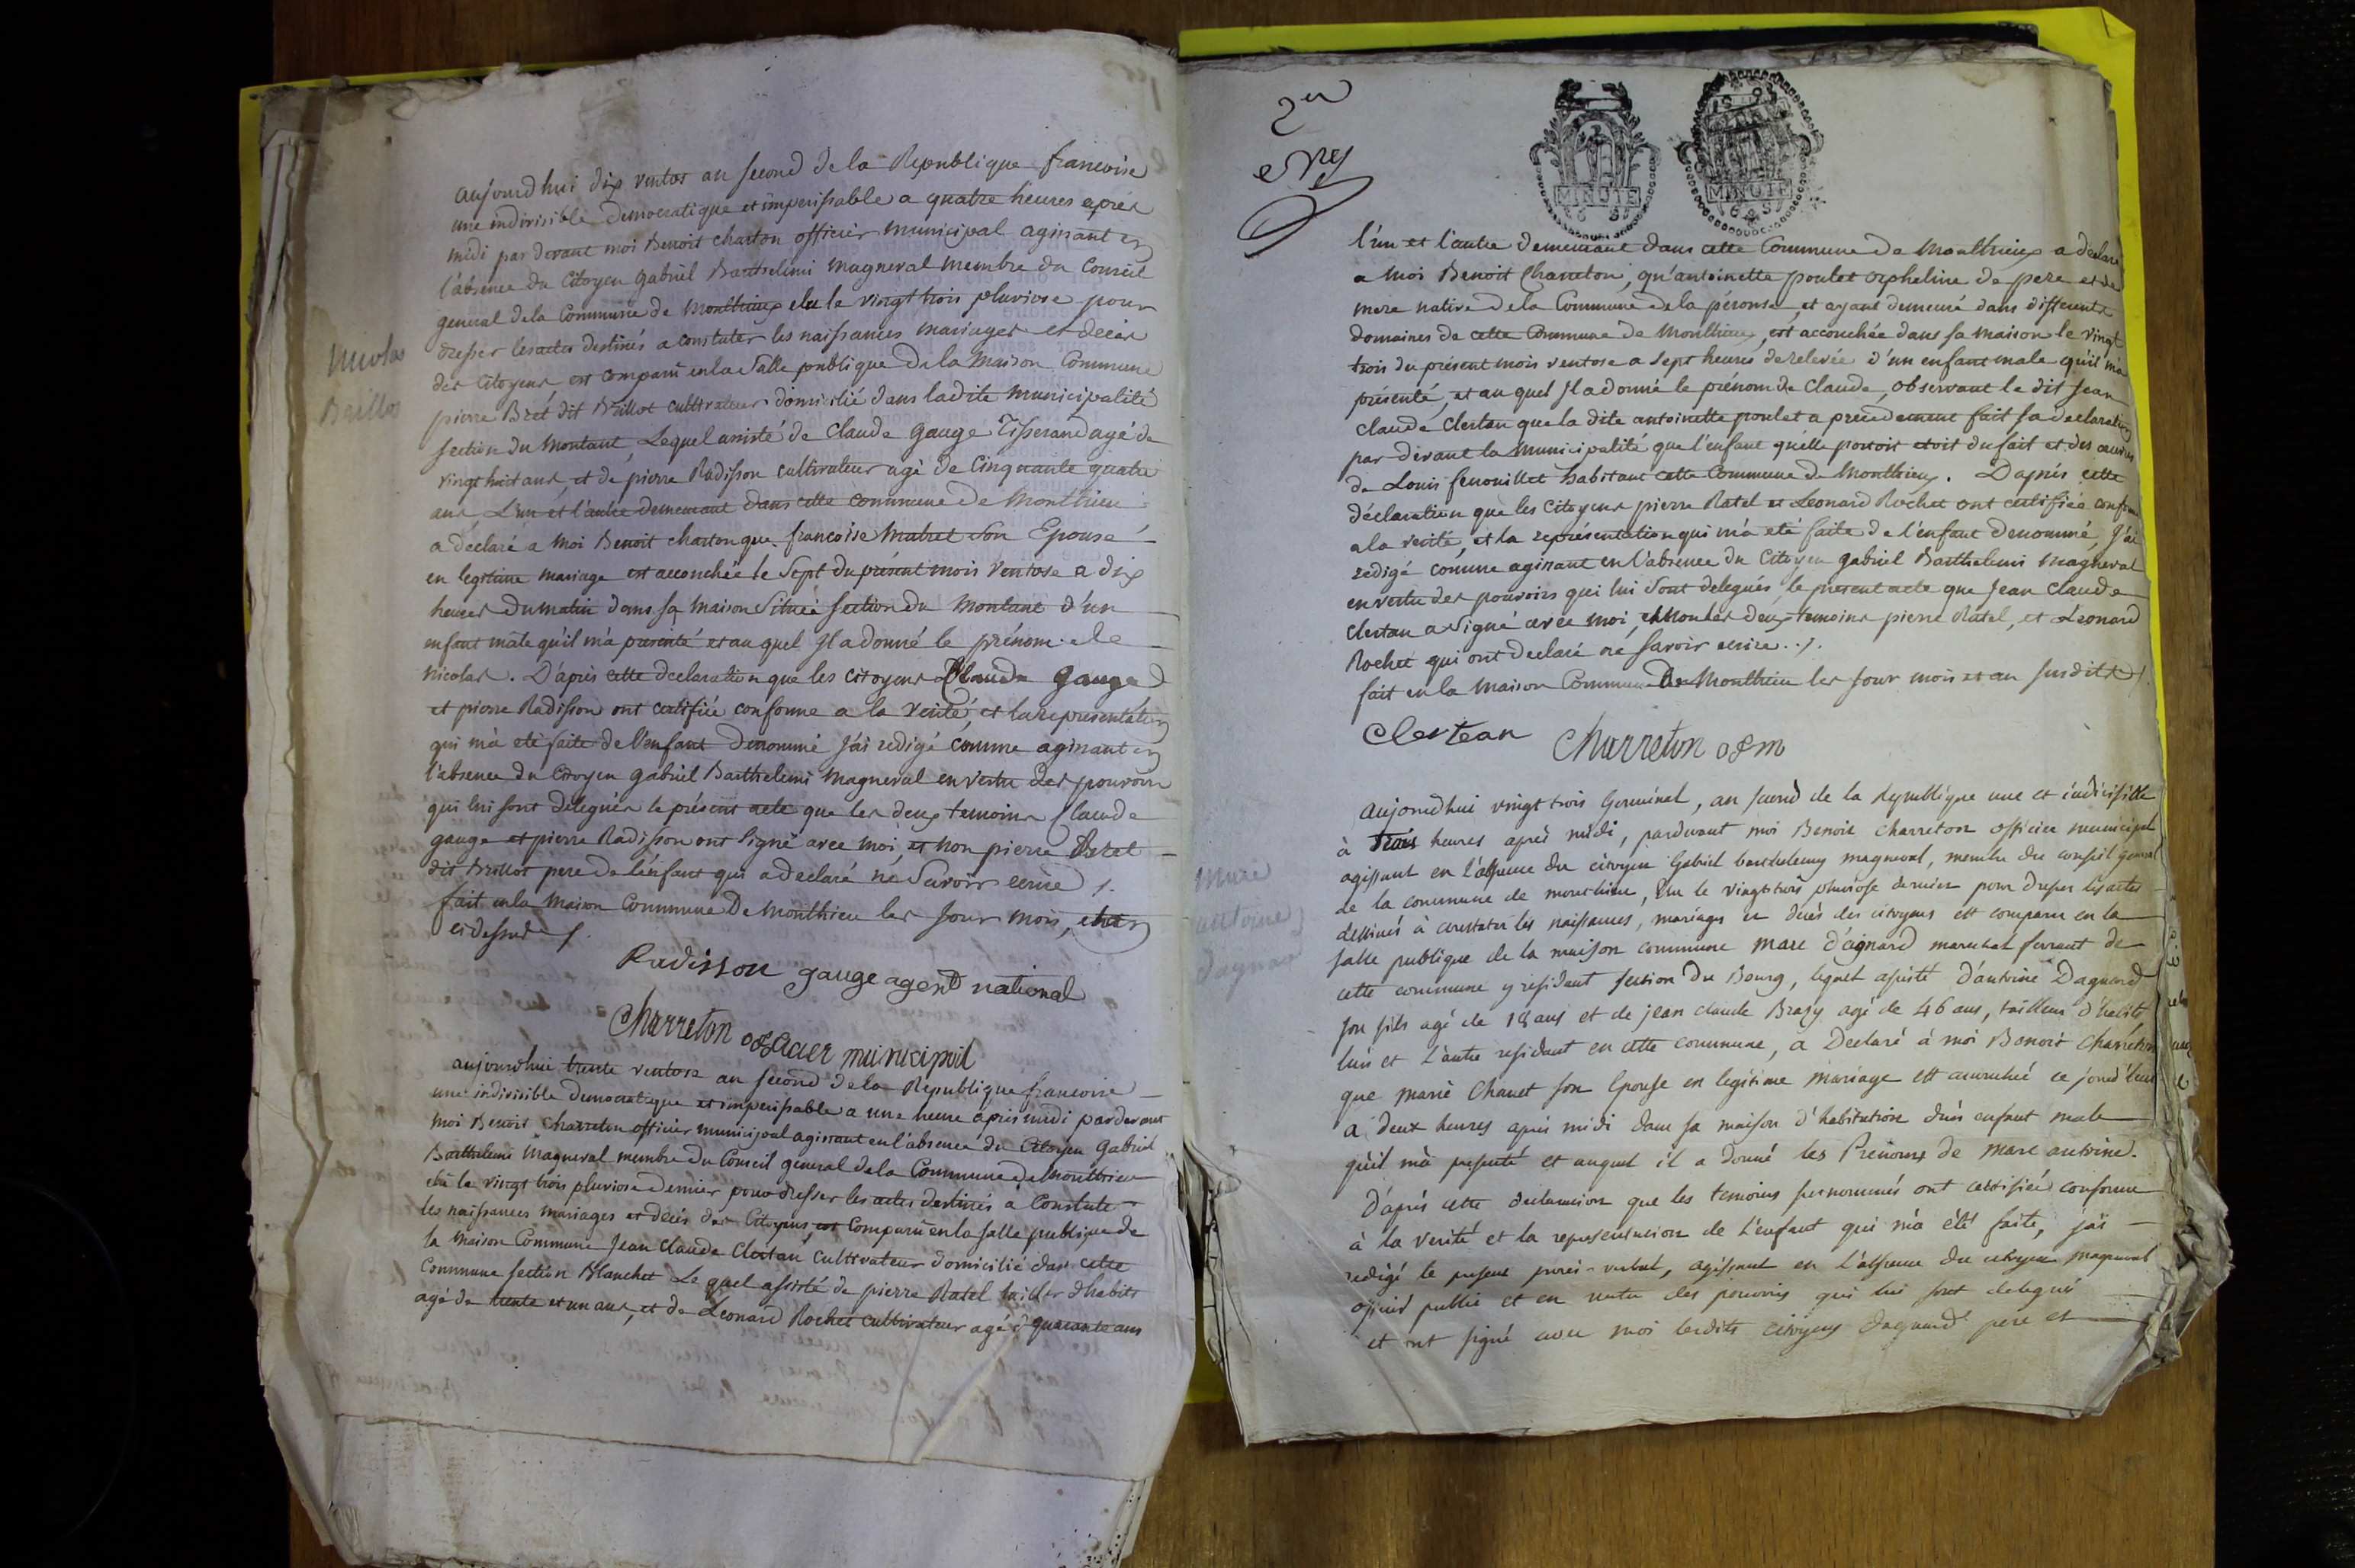 Nicolas
Brillot
aujourdhui dix ventos an second de la Republique francoise
une indivisible democratique et imperissable a quatre heures aprés
midi par devant moi Benoit charton officier municipal agissant en
l'absence du Citoyen gabriel Barthelimi magneval membre du Conseil
general de la Commune de Monthieux elu le vingt trois pluviose pour
dresser les actes destinés a constater les naissances mariages et decés
des Citoyens est comparu en la Salle publique de la Maison Commune
pierre Bret dit Brillot cultivateur domicilié dans ladite Municipalité
section du montant, Lequel assisté de Claude gauge Tisserand agé de
vingt huit ans, et de pierre Radisson cultivateur agé de Cinquante quatre
ans, L'un et l'autre demeurant dans cette commune de Monthieu
a declaré a Moi Benoit charton que francoise Son Epouse
en legitime mariage est accouchée le Sept du présent mois ventose a dix
heures du matin dans sa maison Située section du montant d'un
enfant mâle qu'il m'a presenté et au quel Il a donné le prénom de
Nicolas. D'aprés cette declaration que les citoyens Claude gauge
et pierre Radisson ont certifiée conforme a la verité, et la representation
qui m'a eté faite de l'enfant denommé J'ai redigé comme agissant en
l'absence du Citoyen gabriel Barthelemi Magneval en vertu des pouvoirs
qui lui sont delegués le présent acte que les deux temoins Claude
gauge et pierre Radisson ont signé avec moi, et non pierre Bret
dit Brillot pere de l'enfant qui a declaré ne Savoir ecrire /.
fait en la Maison Commune De Monthieu les Jour mois, et an
ci dessus /.
Radisson gauge agent national
Charreton officier municipal
aujourdhui trente ventose an second de la Republique francoise
une indivisible democratique et imperissable a une heure aprés midi par devant
moi Benoit Charreton officier municipal agissant en l'absence du Citoyen Gabriel
Barthelemi Magneval membre du Conseil general de la Commune de Monthieu
élu le vingt trois pluviose Dernier pour dresser les actes destinés a Constater
les naissances mariages et decés des Citoyens, est Comparu en la salle publique de
la Maison Commune Jean Claude Clertan cultivateur domicilié dans cette
Commune section Blanchet Le quel assisté de pierre Ratel tailler d'habits
agé de trente et un ans, et de Leonard Rochet cultivateur agé de quarante ans
2
MINUTE
MINUTE
l'un et l'autre demeurant dans cette Commune de Monthieux a declaré
a moi Benoit Charreton, qu'antoinette poulet orpheline de pere et de
mere native de la Commune de la pérouse, et ayant demeuré dans differents
domaines de cette Commune de Monthieux, est accouchée dans sa maison le vingt
trois du présent mois ventose a sept heures de relevée d'un enfant male qu'il m'a
présenté, et au quel Il a donné le prénom de Claude, observant le dit Jean
Claude Clertan que la dite antoinette poulet a precedement fait sa declaration
par devant la municipalité que l'enfant qu'elle portoit etoit du fait et des œuvres
de Louis fenouillet habitant cette Commune de Monthieux. D'aprés cette
déclaration que les Citoyens pierre Ratel et Leonard Rochet ont certifiée conforme
a la verité, et la représentation qui m'a eté faite de l'enfant denommé, J'ai
redigé comme agissant en l'absence du Citoyen gabriel Barthelemi magneval
en vertu des pouvoirs qui lui sont delegués, le present acte que Jean Claude
Clertan a signé avec moi, et non les deux temoins pierre Ratel, et Leonard
Rochet qui ont declaré ne savoir ecrire ./.
fait en la maison Commune De Monthieu les jour mois et an susdits /.
Clertean Charreton ofm
Marc
antoine
dagnard
aujourdhui vingt trois Germinal, an second de la Republique une et indivisible
à trois heures aprés midi, pardevant moi Benoit charreton officier municipal
agissant en l'absence du citoyen Gabriel barthelemy magneval, membre du conseil general
de la commune de monthieu, Elu le vingt trois pluviose dernier pour dresser les actes
destinés à constater les naissances, mariages et decés des citoyens est comparu en la
salle publique de la maison commune marc d'agnard marechal ferrant de
cette commune y residant section du Bourg, lequel assisté d'antoine Dagnard
son fils agé de 18 ans et de jean claude Brasy agé de 46 ans, tailleur d'habits
l'un et L'autre residant en cette commune, a Declaré à moi Benoit Charreton
que marie Chanet son Epouse en legitime mariage est accouchée ce jourd'huy
a deux heures aprés midi dans sa maison d'habitation d'un enfant male
qu'il m'a presenté et auquel il a donné les Prenoms de marc antoine.
D'aprés cette declaration que les temoins surnommés ont certifiée conforme
à la verité et la representation de L'enfant qui m'a été faite, j'ai
redigé le present procés-verbal, agissant en l'absence du citoyen magneval
officier public et en vertu des pouvoirs qui lui sont delegués
et ont signé avec moi lesdits citoyens dagnard pere et